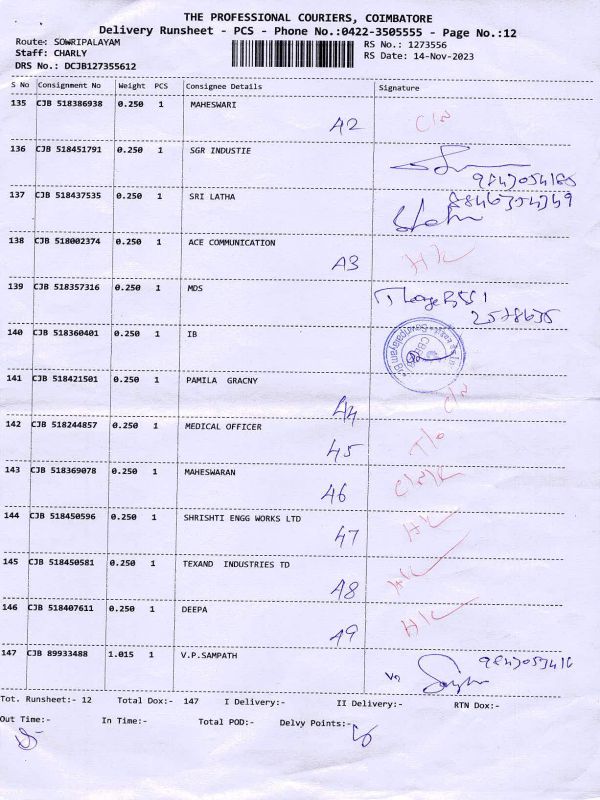 THE PROFESSIONAL COURIERS, COIMBATORE
Delivery Runsheet - PCS - Phone No.:0422-3505555 - Page No.:12
Route: SOWRIPALAYAM
RS No.: 1273556
Staff: CHARLY
RS Date: 14-Nov-2023
DRS No.: DCJB127355612
S No Consignment No Weight PCS Consignee Details Signature
135 CJB 518386938 0.250 1 MAHESWARI
A2
136 CJB 518451791 0.250 1 SGR INDUSTIE
137 CJB 518437535 0.250 1 SRI LATHA
138 CJB 518002374 0.250 1 ACE COMMUNICATION
A3
139 CJB 518357316 0.250 1 MDS
2578635
140 CJB 518360401 0.250 1 IB
141 CJB 518421501 0.250 1 PAMILA GRACNY
44
142 CJB 518244857 0.250 1 MEDICAL OFFICER
45
143 CJB 518369078 0.250 1 MAHESWARAN
46
144 CJB 518450596 0.250 1 SHRISHTI ENGG WORKS LTD
47
145 CJB 518450581 0.250 1 TEXAND INDUSTRIES TD
A8
146 CJB 518407611 0.250 1 DEEPA
A9
147 CJB 89933488 1.015 1 V.P.SAMPATH
Tot. Runsheet:- 12 Total Dox:- 147 I Delivery:- II Delivery:- RTN Dox:-
Out Time:- In Time:- Total POD:- Delvy Points:-